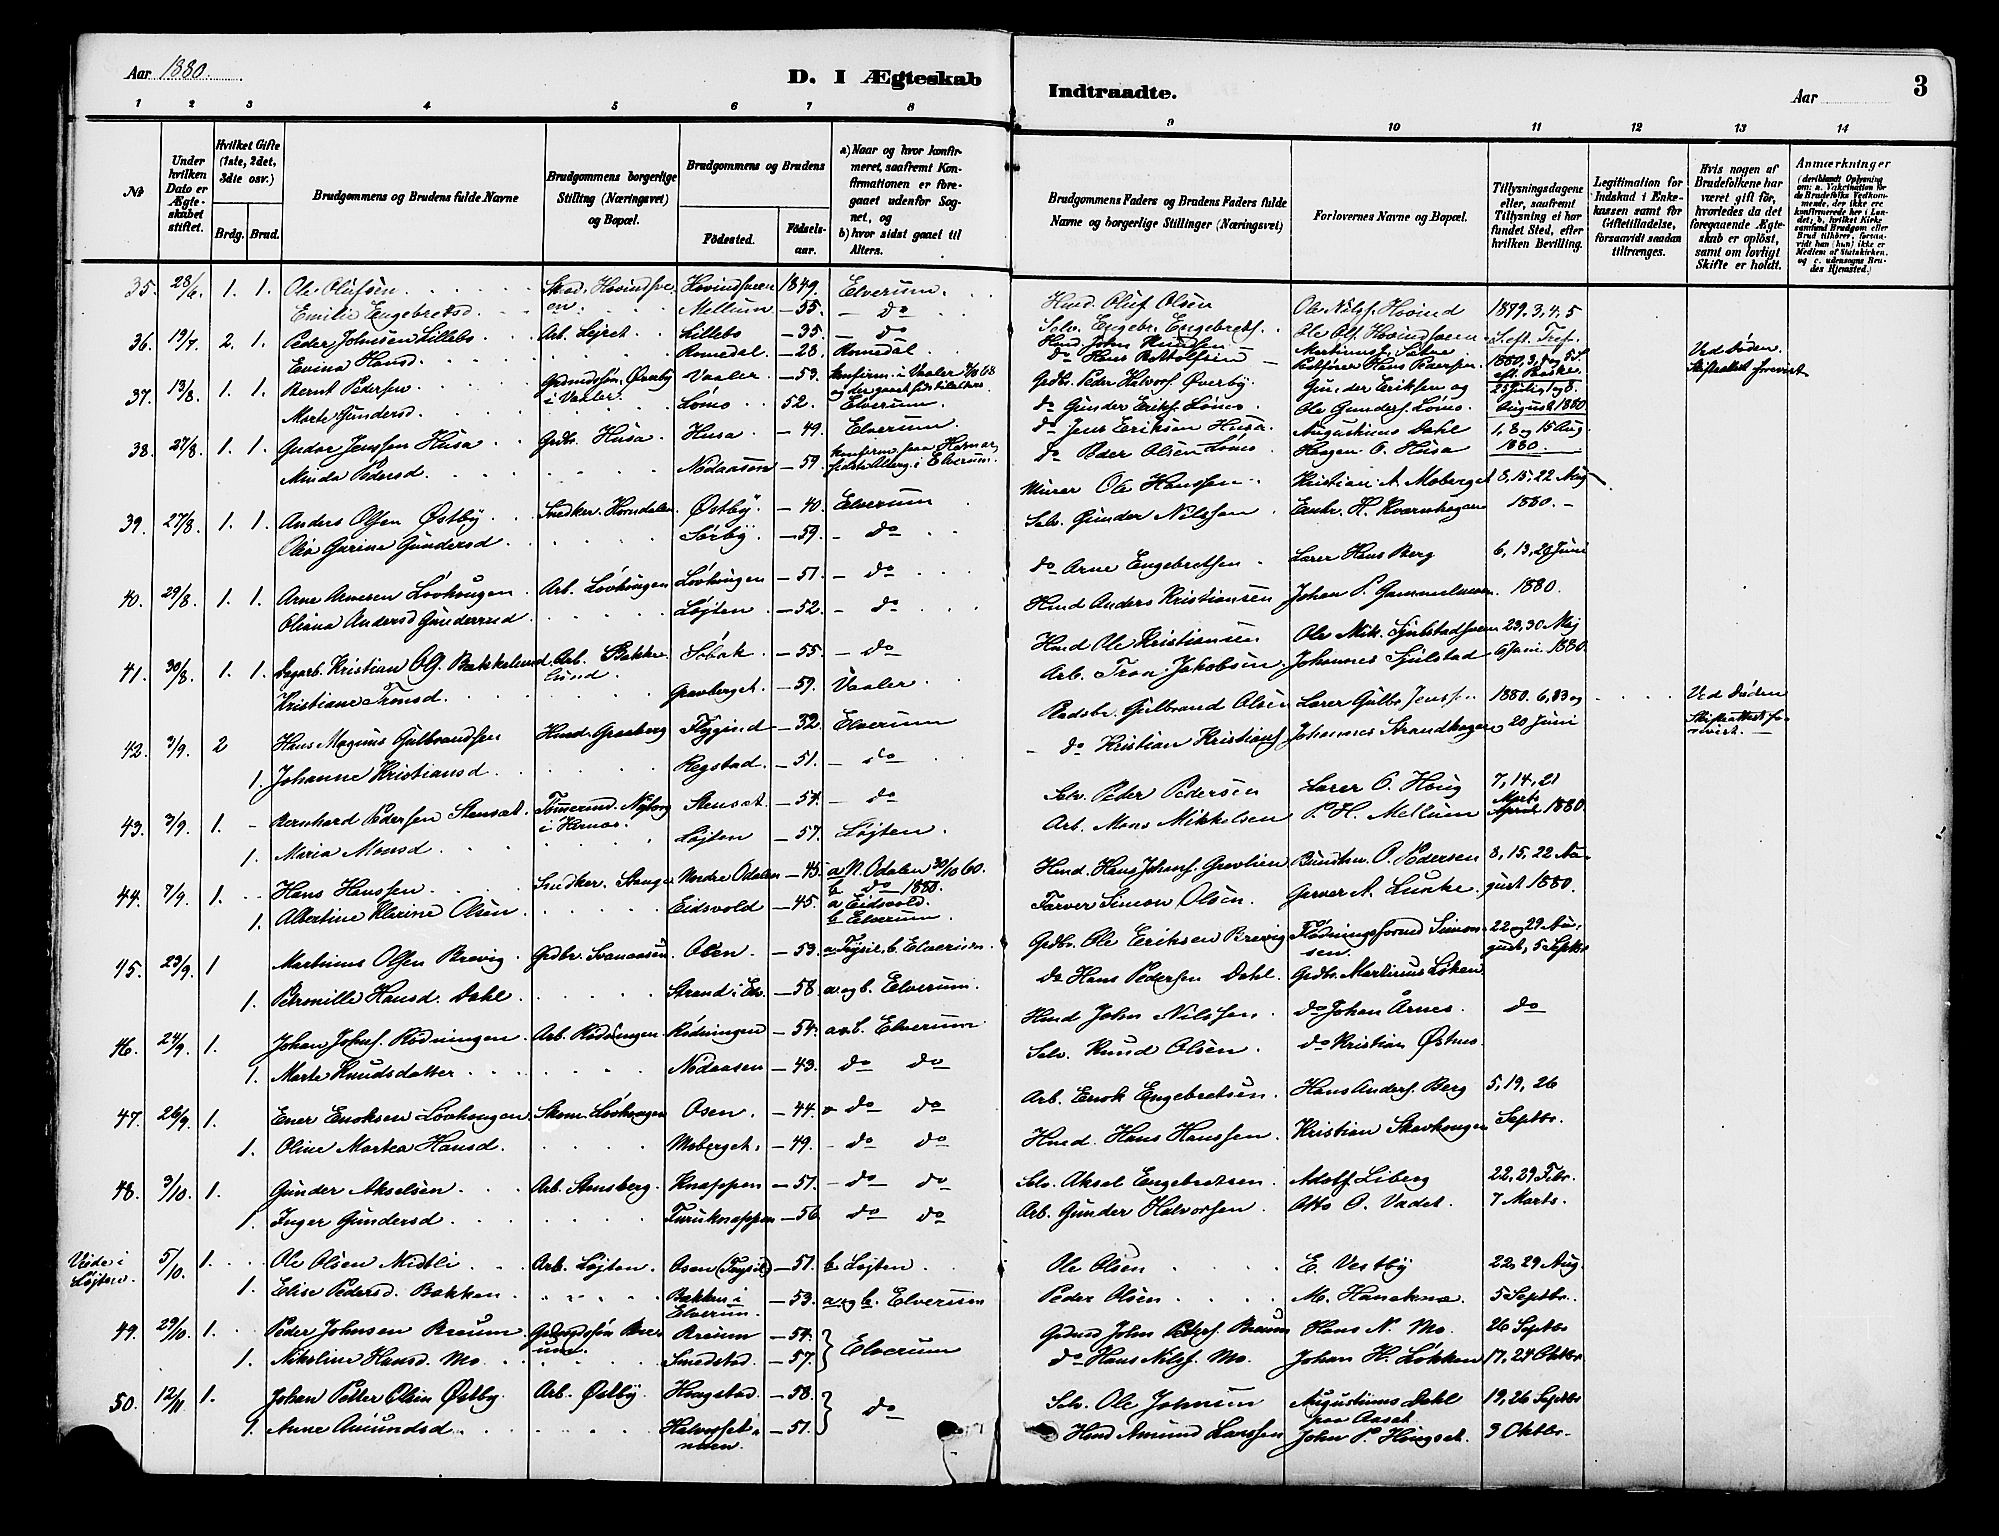 Aar 1880.
D. I Ægteskab
Indtraadte.
Aar
3
1 2 3 4 5 6 7 8
9 10 11 12 13 14
No
Under hvilken Dato er Ægteskabet stiftet.
Hvilket Gifte (1ste, 2det, 3die osv.)
Brdg. Brud.
Brudgommens og Brudens fulde Navne
Brudgommens borgerlige Stilling (Næringsvei) og Bopæl.
Brudgommens og Brudens
Fødested.
Fødselsaar.
a) Naar og hvor konfirmeret, saafremt Konfirmationen er foregaaet udenfor Sognet, og
b) hvor sidst gaaet til Alters.
Brudgommens Faders og Brudens Faders fulde Navne og borgerlige Stillinger (Næringsvei)
Forlovernes Navne og Bopæl.
Tillysningsdagene eller, saafremt Tillysning ei har fundet Sted, efter hvilken Bevilling.
Legitimation for Indskud i Enkekassen samt for Giftetilladelse, forsaavidt saadan tiltrænges.
Hvis nogen af Brudefolkene har været gift før, hvorledes da det foregaaende Ægteskab er opløst, samt om lovligt Skifte er holdt.
Anmærkninger
35. 28/6 1. 1. Ole Olufsen Hovindsveen 1849. Elverum. Hmd. Oluf Olsen Ole Nilsf. Hovind 1879. 3, 4, 5
Emilie Engebretsd. Mellum – 55. – do Selv. Engebr. Engebretsf. Ole Olf. Hovindsveen
36. 19/7 2. 1. Peder Johnsen Lillebo Arb. Lejret. Lillebo – 35. – do Hmd. John Knudsen Ved Døden.
Evina Hansd. Romedal – 28. Romedal. do Hans
37. 13/8 1. 1. Bernt Pedersen Gdmdssøn, Øverby i Vaaler. Vaaler – 53. konfirm. i Vaaler Grdbr. Peder Halvorf. Øverby. Gunder Eriksen og 25 Juli, 1 og 8.
Marte Gundersd. Lømo 52. Elverum. do Gunder Eriksf. Lømo. Ole Gundersf. Lømo. August 1880
38. 27/8 1. 1. Gudar Jenssen Husa Grdbr. Husa. Husa. – 49. Elverum. do Jens Eriksen Husa. Augustinus Dahl 1, 8 og 15 Aug.
Minda Pedersd. Nodaasen – 59. i Elverum. do Peder Olsen Lømo Haagen O. Husa 1880.
39. 27/8 1. 1. Anders Olsen Østby Snedker. Horndalen Østby – 40 Elverum Murer Ole Hanssen. Kristian A. Moberget 8, 15, 22 Aug
Olea Garine Gundersd. Sørby. – 59. – do Selv. Gunder Nilssen H. Kvernhagen 1880. –
40. 29/8 1. 1. Arne Arnesen Løvhaugen. Arb. Løvhaugen Løvhaugen – 51. – do do Arne Engebretsen. Lærer Hans Berg 6, 13, 20 Juni
Oleana Andersd Gunderrud Løjten – 52. – do Hmd Anders Kristiansen Johan P. 1880.
41. 30/8 1. 1. Dagarb. Kristian Ol. Bakkelund. Arb. Bakkelund. Søbak – 55. – do Hmd Ole Kristiansen Ole Mik. 23, 30 Maj
Kristiane Tronsd. Gravberget. – 59. Vaaler. Arb. Tron Jakobsen. Johannes Sjulstad 6 Juni 1880
42. 3/9. 2 Hans Magnus Gulbrandsen Hmd. Graaberg Flygind – 32. Elverum Pladsbr. Gulbrand Olsen Lærer Gulbr. Jenssen 1880. 6, 13 og Ved Døden
1. Johanne Kristiansd. Regstad. – 51. – do – do Kristian Kristiansf. Johannes Strandhagen 20 Juni
43. 3/9. 1. – Bernhard Pedersen Stensæt. Tømmermd. Nyborg i Hernæs. Stensæt – 54. – do Selv. Peder Pedersen Lærer O. Haug 7, 14, 21 Marts
1. Maria Monsd. Løjten – 57. Løjten. Arb. Mons Mikkelsen P. H. Mellum April 1880.
44. 7/9. 1. Hans Hanssen Snedker. Stange Nordre Odalen – 45. a N. Odalen 30/10 60. b do 1880. Hmd. Hans Johansf. Gravlien P. Pedersen 8, 15, 22 Au-
1. Albertine Klarine Olsen Eidsvold – 45. a Eidsvold. b Elverum Farver Simon Olsen. Garver A. Lunke. gust 1880.
45. 23/9. 1 Martinus Olsen Brevig. Grdbr. Svenaasen. Osen. – 53. a Trysil, b. Elverum. Grdbr. Ole Eriksen Brevig Fløtningsformd Simonsen. 22 og 29 Au-
1. Pernille Hansd. Dahl Strand i Elv. – 58 a og b. Elverum. do Hans Pedersen Dahl. Grdbr. Martinus Løken gust, 5 Septbr.
46. 24/9. 1. Johan Johnsf. Rødningen Arb. Rødningen. Rødningen – 54. a og b. Elverum Hmd John Nilssen do Johan Årnes. do
1. Marte Knudsdatter Nodaasen – 43. do do Selv. Knud Olsen. do Kristian Østmo.
47. 26/9. 1. Ener Enoksen Løvhaugen Skom. Løvhaugen Osen. – 44. do do Arb. Enok Engebretsen. Hans Andersf. Berg 5, 19, 26
1. Oline Martea Hansd. Moberget. – 49. – do do Hmd. Hans Hanssen. Kristian Skavhaugen Septbr.
48. 3/10. 1. Gunder Akselsen Arb. Arnsberg. Knappen – 51. – do do Selv. Aksel Engebretsen. Adolf Liberg 22, 29 Febr.
1. Inger Gundersd Furuknappen – 56. do do Arb. Gunder Halvorsen. Otto O. Vadet. 7 Marts.
Viede i Løjten. 5/10. 1. Ole Olsen Midtli Arb. Løjten. Osen (Trysil) – 51. b Løjten. Ole Olsen E. Vestby 22, 29 Aug.
1. Elise Pedersd. Bakken Bakken i Elverum. – 53. a og b. Elverum Peder Olsen M. 5 Septbr.
49. 29/10. 1. Peder Johnsen Bræum Bræum – 54. Elverum Gdmd John Pedersf. Bræum Hans N. Mo. 26 Septbr
1. Nikoline Hansd. Mo Smedstad. – 57. do Hans Nilsf. Mo. Johan H. Løkken 17, 24 Oktbr.
50. 12/11. 1. Johan Petter Olsen Østby. Arb. Østby. Haugstad. – 58. do Selv. Ole Johnsen Augustinus Dahl paa Aaset 19, 26 Septbr.
1. Anne Amundsd. – 51. Hmd Amund Larssen John P. Haugset. 3 Oktbr.